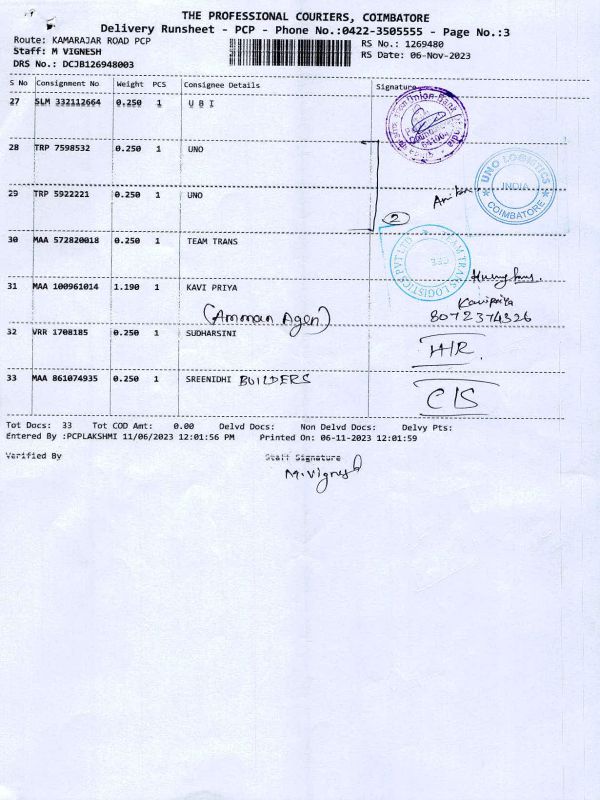 THE PROFESSIONAL COURIERS, COIMBATORE
Delivery Runsheet - PCP - Phone No.:0422-3505555 - Page No.:3
Route: KAMARAJAR ROAD PCP
RS No.: 1269480
Staff: M VIGNESH
RS Date: 06-Nov-2023
DRS No.: DCJB126948003
S No Consignment No Weight PCS Consignee Details Signature
27 SLM 332112664 0.250 1 U B I
Union Bank
28 TRP 7598532 0.250 1 UNO
UNO LOGISTICS
INDIA
COIMBATORE
29 TRP 5922221 0.250 1 UNO
2
30 MAA 572820018 0.250 1 TEAM TRANS
TEAM TRANS LOGISTICS PVT LTD
31 MAA 100961014 1.190 1 KAVI PRIYA
Kavipriya
(Amman Agen)
8072374326
32 VRR 1708185 0.250 1 SUDHARSINI
H/R
33 MAA 861074935 0.250 1 SREENIDHI BUILDERS
C/S
Tot Docs: 33 Tot COD Amt: 0.00 Delvd Docs: Non Delvd Docs: Delvy Pts:
Entered By :PCPLAKSHMI 11/06/2023 12:01:56 PM Printed On: 06-11-2023 12:01:59
Verified By Staff Signature
M.Vignesh